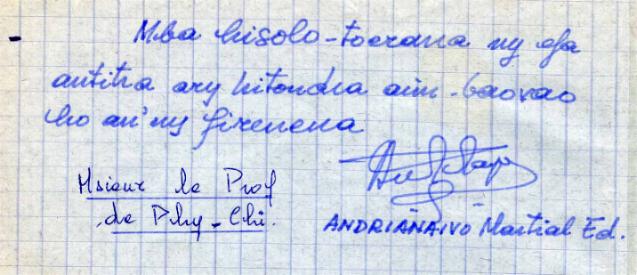 - Mba hisolo-toerana ny efa
antitra ary hitondra aim-baovao
ho an'ny firenena
Msieur le Prof
de Phy-Chi.
ANDRIANAIVO Martial Ed.